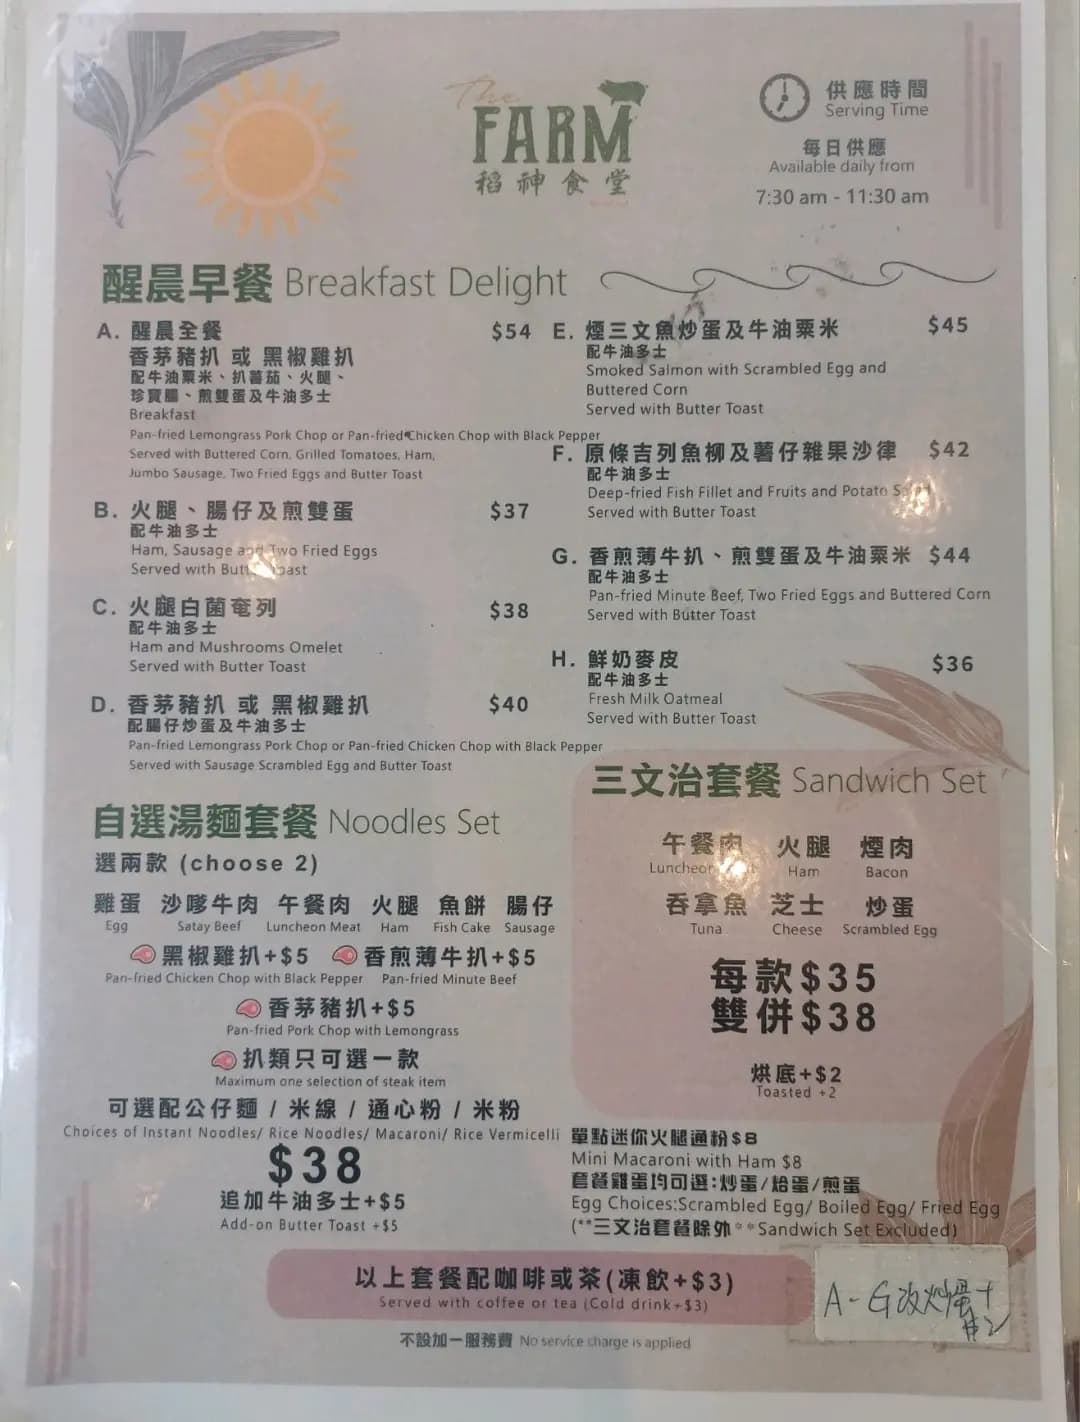 The
FARM
稻神食堂
供應時間
Serving Time
每日供應
Available daily from
7:30 am - 11:30 am
醒晨早餐 Breakfast Delight
A. 醒晨全餐 $54
香茅豬扒 或 黑椒雞扒
配牛油粟米、扒蕃茄、火腿、
珍寶腸、煎雙蛋及牛油多士
Breakfast
Pan-fried Lemongrass Pork Chop or Pan-fried Chicken Chop with Black Pepper
Served with Buttered Corn, Grilled Tomatoes, Ham,
Jumbo Sausage, Two Fried Eggs and Butter Toast
B. 火腿、腸仔及煎雙蛋 $37
配牛油多士
Ham, Sausage and Two Fried Eggs
Served with Butter Toast
C. 火腿白菌奄列 $38
配牛油多士
Ham and Mushrooms Omelet
Served with Butter Toast
D. 香茅豬扒 或 黑椒雞扒 $40
配腸仔炒蛋及牛油多士
Pan-fried Lemongrass Pork Chop or Pan-fried Chicken Chop with Black Pepper
Served with Sausage Scrambled Egg and Butter Toast
E. 煙三文魚炒蛋及牛油粟米 $45
配牛油多士
Smoked Salmon with Scrambled Egg and
Buttered Corn
Served with Butter Toast
F. 原條吉列魚柳及薯仔雜果沙律 $42
配牛油多士
Deep-fried Fish Fillet and Fruits and Potato Salad
Served with Butter Toast
G. 香煎薄牛扒、煎雙蛋及牛油粟米 $44
配牛油多士
Pan-fried Minute Beef, Two Fried Eggs and Buttered Corn
Served with Butter Toast
H. 鮮奶麥皮 $36
配牛油多士
Fresh Milk Oatmeal
Served with Butter Toast
自選湯麵套餐 Noodles Set
選兩款 (choose 2)
雞蛋 沙嗲牛肉 午餐肉 火腿 魚餅 腸仔
Egg Satay Beef Luncheon Meat Ham Fish Cake Sausage
黑椒雞扒+$5 香煎薄牛扒+$5
Pan-fried Chicken Chop with Black Pepper Pan-fried Minute Beef
香茅豬扒+$5
Pan-fried Pork Chop with Lemongrass
扒類只可選一款
Maximum one selection of steak item
可選配公仔麵 / 米線 / 通心粉 / 米粉
Choices of Instant Noodles/ Rice Noodles/ Macaroni/ Rice Vermicelli
$38
追加牛油多士+$5
Add-on Butter Toast +$5
三文治套餐 Sandwich Set
午餐肉 火腿 煙肉
Luncheon Meat Ham Bacon
吞拿魚 芝士 炒蛋
Tuna Cheese Scrambled Egg
每款$35
雙併$38
烘底+$2
Toasted +2
單點迷你火腿通粉$8
Mini Macaroni with Ham $8
套餐雞蛋均可選:炒蛋/烚蛋/煎蛋
Egg Choices:Scrambled Egg/ Boiled Egg/ Fried Egg
(**三文治套餐除外**Sandwich Set Excluded)
以上套餐配咖啡或茶(凍飲+$3)
Served with coffee or tea (Cold drink+$3)
A-G改炒蛋+
$2
不設加一服務費 No service charge is applied